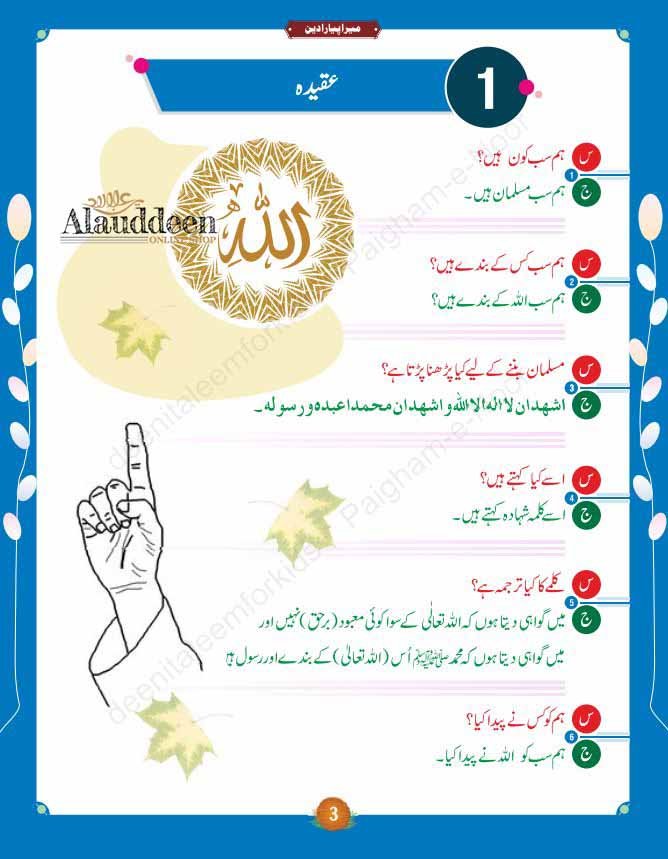 میرا پیارا دین
1
عقیدہ
الله
علاؤالدین
Alauddeen
ONLINE SHOP
س ہم سب کون ہیں؟
1
ج ہم سب مسلمان ہیں۔
س ہم سب کس کے بندے ہیں؟
2
ج ہم سب اللہ کے بندے ہیں؟
س مسلمان بننے کے لیے کیا پڑھنا پڑتا ہے؟
3
ج اشهدان لا اله الا الله و اشهدان محمدا عبده ورسوله۔
س اسے کیا کہتے ہیں؟
4
ج اسے کلمہ شہادہ کہتے ہیں۔
س کلمے کا کیا ترجمہ ہے؟
5
ج میں گواہی دیتا ہوں کہ اللہ تعالٰی کے سوا کوئی معبود (برحق) نہیں اور
میں گواہی دیتا ہوں کہ محمد ﷺ اُس (اللہ تعالیٰ) کے بندے اور رسول ہیں
س ہم کو کس نے پیدا کیا؟
6
ج ہم سب کو اللہ نے پیدا کیا۔
deenitaleemforkids Paigham-e-Noor
deenitaleemforkids Paigham-e-Noor
3